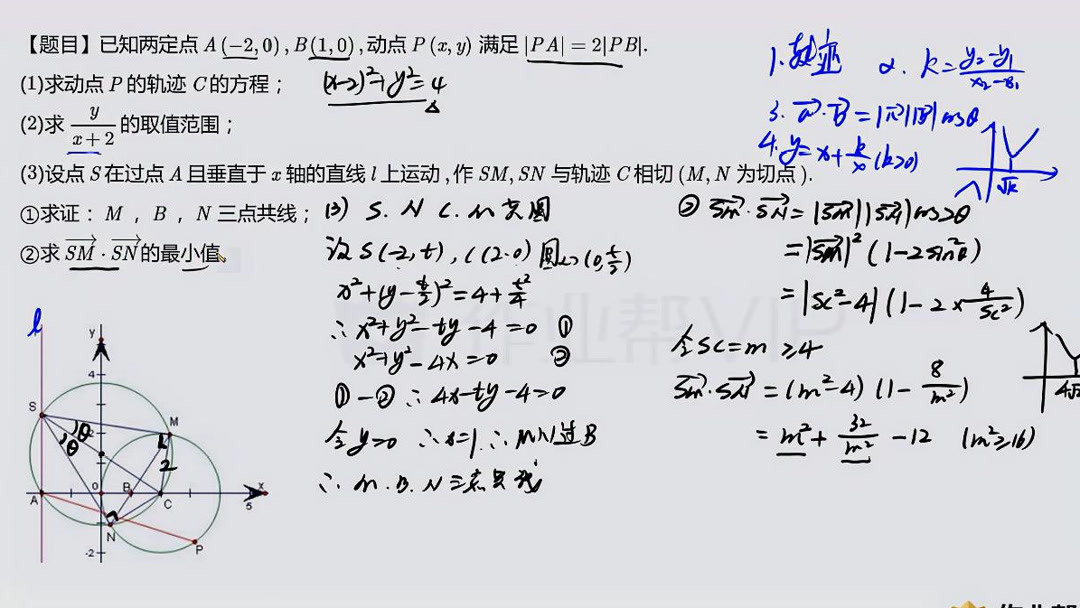 【题目】已知两定点 A(−2,0),B(1,0),动点 P(x,y) 满足 |PA|=2|PB|.
(1)求动点 P 的轨迹 C 的方程； (x-2)²+y²=4
(2)求 y/(x+2) 的取值范围；
(3)设点 S 在过点 A 且垂直于 x 轴的直线 l 上运动,作 SM,SN 与轨迹 C 相切 (M,N 为切点).
①求证： M ， B ， N 三点共线；
②求 SM·SN 的最小值
1.轨迹 2. k=(y₂-y₁)/(x₂-x₁)
3. a·b=|a||b|cosθ
4. y=x+k/x (k>0)
√k
(3) S.N C.M 共圆
设 S(-2,t), C(2,0) 圆心(0,t/2)
x²+(y-t/2)²=4+t²/4
∴x²+y²-ty-4=0 ①
x²+y²-4x=0 ②
①-② ∴4x-ty-4=0
令y=0 ∴x=1 ∴MN过B
∴ M.B.N三点共线
② SM·SN=|SM||SN|cos2θ
=|SM|²(1-2sin²θ)
=|SC²-4|(1-2×4/SC²)
令SC=m ≥4
SM·SN=(m²-4)(1-8/m²)
=m²+32/m²-12 (m²≥16)
4√2
l
y
4
S
M
θ
θ
2
A
0
B
C
x
5
N
P
-2
作业帮VIP
作业帮